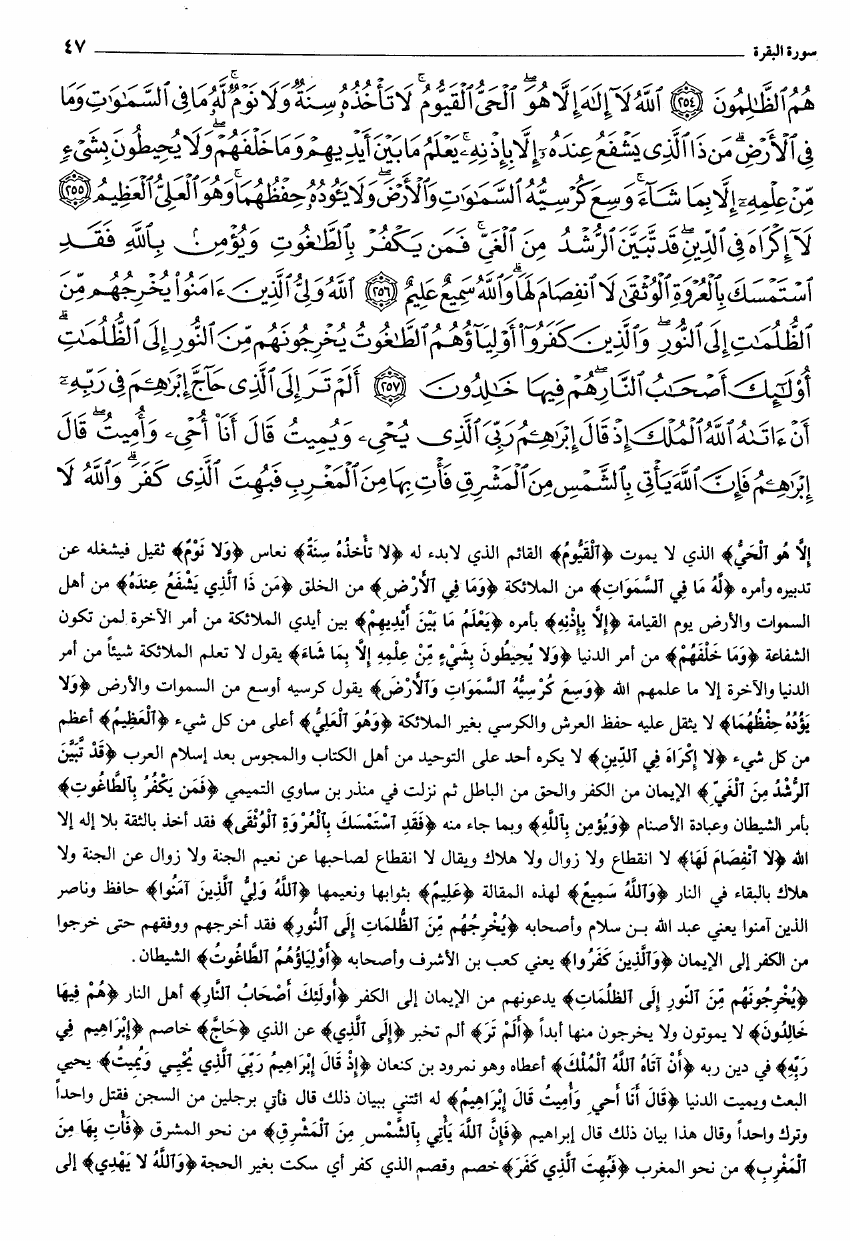 سورة البقرة ٤٧
هُمُ ٱلظَّٰلِمُونَ ﴿٢٥٤﴾ ٱللَّهُ لَآ إِلَٰهَ إِلَّا هُوَ ٱلْحَىُّ ٱلْقَيُّومُ ۚ لَا تَأْخُذُهُۥ سِنَةٌ وَلَا نَوْمٌ ۚ لَّهُۥ مَا فِى ٱلسَّمَٰوَٰتِ وَمَا
فِى ٱلْأَرْضِ ۗ مَن ذَا ٱلَّذِى يَشْفَعُ عِندَهُۥٓ إِلَّا بِإِذْنِهِۦ ۚ يَعْلَمُ مَا بَيْنَ أَيْدِيهِمْ وَمَا خَلْفَهُمْ ۖ وَلَا يُحِيطُونَ بِشَىْءٍ
مِّنْ عِلْمِهِۦٓ إِلَّا بِمَا شَآءَ ۚ وَسِعَ كُرْسِيُّهُ ٱلسَّمَٰوَٰتِ وَٱلْأَرْضَ ۖ وَلَا يَـُٔودُهُۥ حِفْظُهُمَا ۚ وَهُوَ ٱلْعَلِىُّ ٱلْعَظِيمُ ﴿٢٥٥﴾
لَآ إِكْرَاهَ فِى ٱلدِّينِ ۖ قَد تَّبَيَّنَ ٱلرُّشْدُ مِنَ ٱلْغَىِّ ۚ فَمَن يَكْفُرْ بِٱلطَّٰغُوتِ وَيُؤْمِنۢ بِٱللَّهِ فَقَدِ
ٱسْتَمْسَكَ بِٱلْعُرْوَةِ ٱلْوُثْقَىٰ لَا ٱنفِصَامَ لَهَا ۗ وَٱللَّهُ سَمِيعٌ عَلِيمٌ ﴿٢٥٦﴾ ٱللَّهُ وَلِىُّ ٱلَّذِينَ ءَامَنُوا۟ يُخْرِجُهُم مِّنَ
ٱلظُّلُمَٰتِ إِلَى ٱلنُّورِ ۖ وَٱلَّذِينَ كَفَرُوٓا۟ أَوْلِيَآؤُهُمُ ٱلطَّٰغُوتُ يُخْرِجُونَهُم مِّنَ ٱلنُّورِ إِلَى ٱلظُّلُمَٰتِ ۗ
أُو۟لَٰٓئِكَ أَصْحَٰبُ ٱلنَّارِ ۖ هُمْ فِيهَا خَٰلِدُونَ ﴿٢٥٧﴾ أَلَمْ تَرَ إِلَى ٱلَّذِى حَآجَّ إِبْرَٰهِۦمَ فِى رَبِّهِۦٓ
أَنْ ءَاتَىٰهُ ٱللَّهُ ٱلْمُلْكَ إِذْ قَالَ إِبْرَٰهِۦمُ رَبِّىَ ٱلَّذِى يُحْىِۦ وَيُمِيتُ قَالَ أَنَا۠ أُحْىِۦ وَأُمِيتُ ۖ قَالَ
إِبْرَٰهِۦمُ فَإِنَّ ٱللَّهَ يَأْتِى بِٱلشَّمْسِ مِنَ ٱلْمَشْرِقِ فَأْتِ بِهَا مِنَ ٱلْمَغْرِبِ فَبُهِتَ ٱلَّذِى كَفَرَ ۗ وَٱللَّهُ لَا
إِلَّا هُوَ ٱلْحَيُّ﴾ الذي لا يموت ﴿ٱلْقَيُّومُ﴾ القائم الذي لابدء له ﴿لَا تَأْخُذُهُ سِنَةٌ﴾ نعاس ﴿وَلَا نَوْمٌ﴾ ثقيل فيشغله عن
تدبيره وأمره ﴿لَّهُ مَا فِي ٱلسَّمَوَاتِ﴾ من الملائكة ﴿وَمَا فِي ٱلْأَرْضِ﴾ من الخلق ﴿مَن ذَا ٱلَّذِي يَشْفَعُ عِنْدَهُ﴾ من أهل
السموات والأرض يوم القيامة ﴿إِلَّا بِإِذْنِهِ﴾ بأمره ﴿يَعْلَمُ مَا بَيْنَ أَيْدِيهِمْ﴾ بين أيدي الملائكة من أمر الآخرة لمن تكون
الشفاعة ﴿وَمَا خَلْفَهُمْ﴾ من أمر الدنيا ﴿وَلَا يُحِيطُونَ بِشَيْءٍ مِّنْ عِلْمِهِ إِلَّا بِمَا شَاءَ﴾ يقول لا تعلم الملائكة شيئاً من أمر
الدنيا والآخرة إلا ما علمهم الله ﴿وَسِعَ كُرْسِيُّهُ ٱلسَّمَوَاتِ وَٱلْأَرْضَ﴾ يقول كرسيه أوسع من السموات والأرض ﴿وَلَا
يَؤُدُهُ حِفْظُهُمَا﴾ لا يثقل عليه حفظ العرش والكرسي بغير الملائكة ﴿وَهُوَ ٱلْعَلِيُّ﴾ أعلى من كل شيء ﴿ٱلْعَظِيمُ﴾ أعظم
من كل شيء ﴿لَا إِكْرَاهَ فِي ٱلدِّينِ﴾ لا يكره أحد على التوحيد من أهل الكتاب والمجوس بعد إسلام العرب ﴿قَدْ تَّبَيَّنَ
ٱلرُّشْدُ مِنَ ٱلْغَيِّ﴾ الإيمان من الكفر والحق من الباطل ثم نزلت في منذر بن ساوي التميمي ﴿فَمَن يَكْفُرْ بِٱلطَّاغُوتِ﴾
بأمر الشيطان وعبادة الأصنام ﴿وَيُؤْمِن بِٱللَّهِ﴾ وبما جاء منه ﴿فَقَدِ ٱسْتَمْسَكَ بِٱلْعُرْوَةِ ٱلْوُثْقَى﴾ فقد أخذ بالثقة بلا إله إلا
الله ﴿لَا ٱنْفِصَامَ لَهَا﴾ لا انقطاع ولا زوال ولا هلاك ويقال لا انقطاع لصاحبها عن نعيم الجنة ولا زوال عن الجنة ولا
هلاك بالبقاء في النار ﴿وَٱللَّهُ سَمِيعٌ﴾ لهذه المقالة ﴿عَلِيمٌ﴾ بثوابها ونعيمها ﴿ٱللَّهُ وَلِيُّ ٱلَّذِينَ آمَنُوا﴾ حافظ وناصر
الذين آمنوا يعني عبد الله بن سلام وأصحابه ﴿يُخْرِجُهُم مِّنَ ٱلظُّلُمَاتِ إِلَى ٱلنُّورِ﴾ فقد أخرجهم ووفقهم حتى خرجوا
من الكفر إلى الإيمان ﴿وَٱلَّذِينَ كَفَرُوا﴾ يعني كعب بن الأشرف وأصحابه ﴿أَوْلِيَاؤُهُمُ ٱلطَّاغُوتُ﴾ الشيطان.
﴿يُخْرِجُونَهُم مِّنَ ٱلنُّورِ إِلَى ٱلظُّلُمَاتِ﴾ يدعونهم من الإيمان إلى الكفر ﴿أُولَئِكَ أَصْحَابُ ٱلنَّارِ﴾ أهل النار ﴿هُمْ فِيهَا
خَالِدُونَ﴾ لا يموتون ولا يخرجون منها أبداً ﴿أَلَمْ تَرَ﴾ ألم تخبر ﴿إِلَى ٱلَّذِي﴾ عن الذي ﴿حَاجَّ﴾ خاصم ﴿إِبْرَاهِيمَ فِي
رَبِّهِ﴾ في دين ربه ﴿أَنْ آتَاهُ ٱللَّهُ ٱلْمُلْكَ﴾ أعطاه وهو نمرود بن كنعان ﴿إِذْ قَالَ إِبْرَاهِيمُ رَبِّيَ ٱلَّذِي يُحْيِي وَيُمِيتُ﴾ يحيي
البعث ويميت الدنيا ﴿قَالَ أَنَا أُحْيِ وَأُمِيتُ قَالَ إِبْرَاهِيمُ﴾ له ائتني ببيان ذلك قال فأتي برجلين من السجن فقتل واحداً
وترك واحداً وقال هذا بيان ذلك قال إبراهيم ﴿فَإِنَّ ٱللَّهَ يَأْتِي بِٱلشَّمْسِ مِنَ ٱلْمَشْرِقِ﴾ من نحو المشرق ﴿فَأْتِ بِهَا مِنَ
ٱلْمَغْرِبِ﴾ من نحو المغرب ﴿فَبُهِتَ ٱلَّذِي كَفَرَ﴾ خصم وقصم الذي كفر أي سكت بغير الحجة ﴿وَٱللَّهُ لَا يَهْدِي﴾ إلى